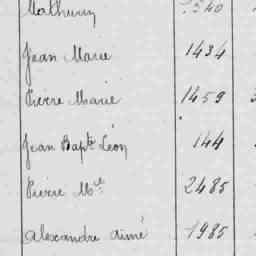 Mathurin 540
Jean Marie 1434
Pierre Marie 1459
Jean Bapte Léon 144
Pierre Mie 2485
Alexandre Aimé 1985